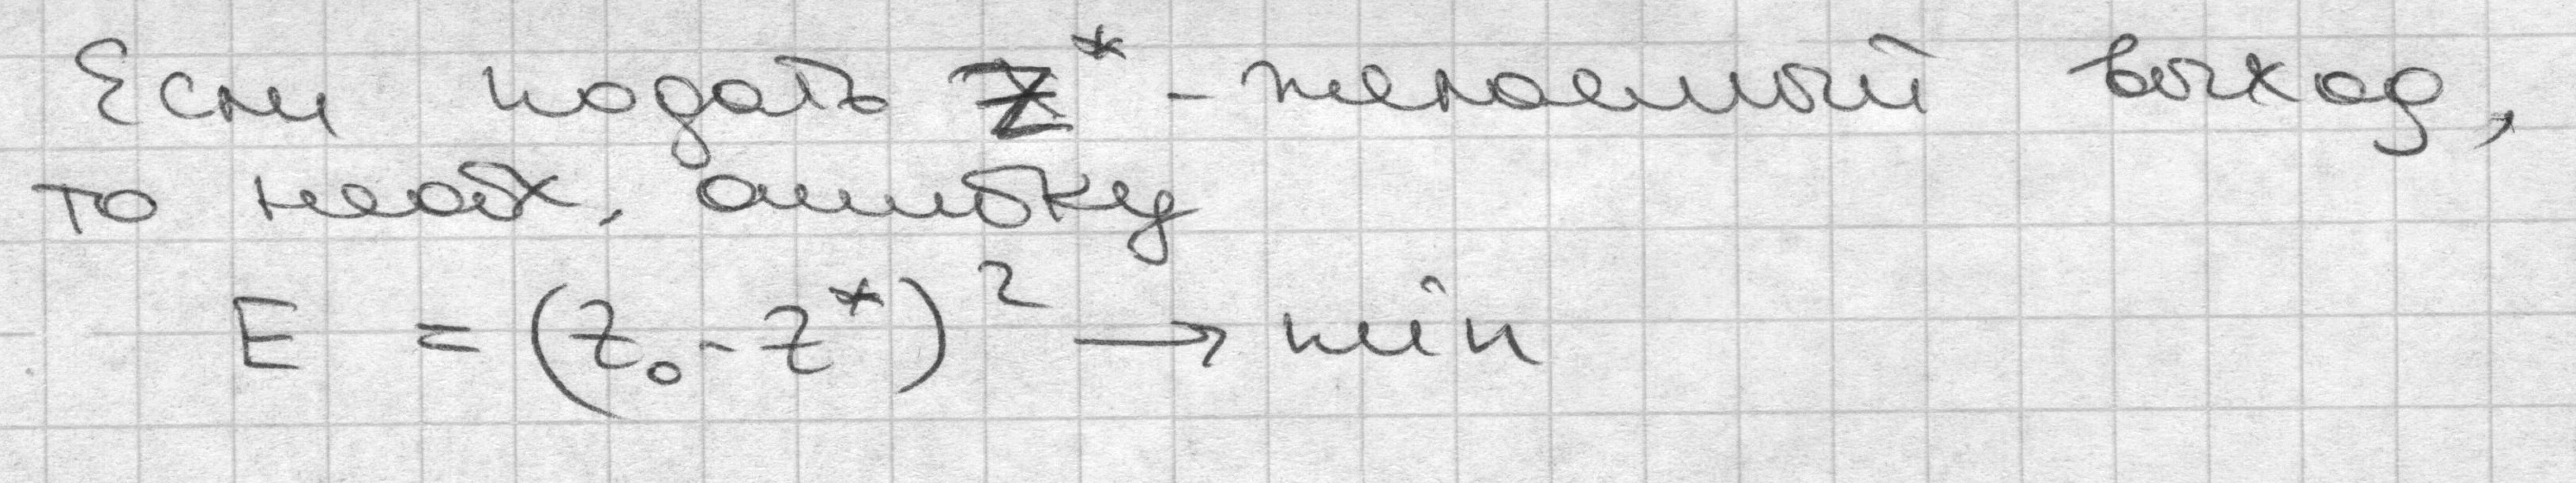 Если подать Z* - желаемый выход,
то необх. ошибку
E = (z₀ - z*)² → min